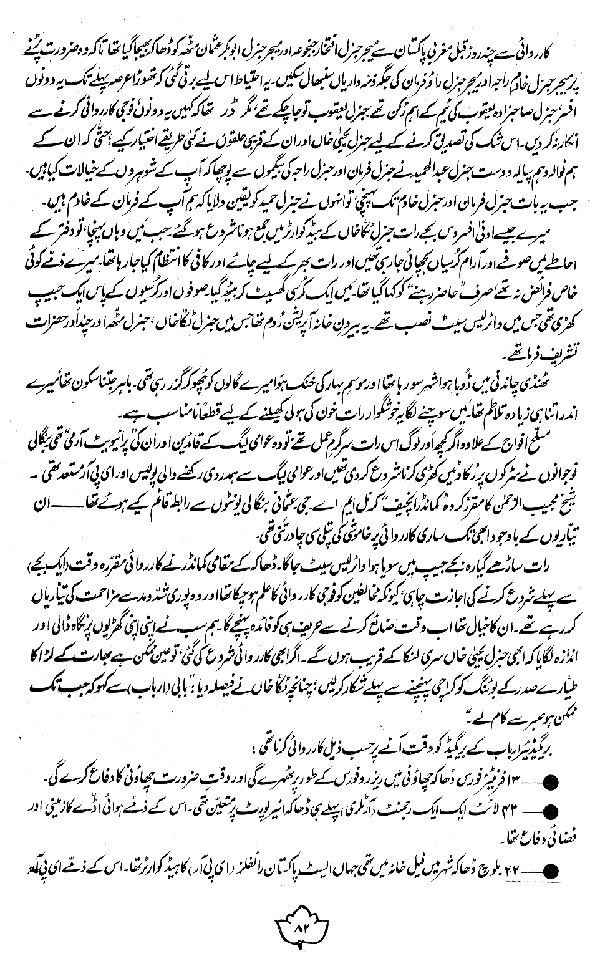 کارروائی سے چند روز قبل مغربی پاکستان سے میجر جنرل افتخار جنجوعہ اور میجر جنرل ابوبکر عثمان مٹھہ کو ڈھاکہ بھیجا گیا تھا تاکہ وہ ضرورت پڑنے
پر میجر جنرل خادم راجہ اور میجر جنرل راؤ فرمان کی جگہ ذمہ داریاں سنبھال سکیں۔ یہ احتیاط اس لیے برتی گئی کہ تھوڑا عرصہ پہلے تک یہ دونوں
افسر جنرل صاحبزادہ یعقوب کی ٹیم کے اہم رکن تھے جنرل یعقوب تو جا چکے تھے مگر ڈر تھا کہ کہیں یہ دونوں فوجی کارروائی کرنے سے
انکار نہ کر دیں۔ اس شک کی تصدیق کرنے کے لیے جنرل یحییٰ خاں اور ان کے قریبی حلقوں نے کئی طریقے اختیار کیے حتیٰ کہ ان کے
ہم نوالہ و ہم پیالہ دوست جنرل عبدالحمید نے جنرل فرمان اور جنرل راجہ کی بیگموں سے پوچھا کہ آپ کے شوہروں کے خیالات کیا ہیں۔
جب یہ بات جنرل فرمان اور جنرل خادم تک پہنچی تو انہوں نے جنرل حمید کو یقین دلایا کہ ہم آپ کے فرمان کے خادم ہیں۔
میرے جیسے ادنیٰ افسر دس بجے رات جنرل ٹکا خاں کے ہیڈ کوارٹر میں جمع ہونا شروع ہو گئے جب میں وہاں پہنچا تو دفتر کے
احاطے میں صوفے اور آرام کرسیاں بچھائی جا رہی تھیں اور رات بھر کے لیے چائے اور کافی کا انتظام کیا جا رہا تھا۔ میرے ذمے کوئی
خاص فرائض نہ تھے صرف "حاضر رہنے" کو کہا گیا تھا۔ میں ایک کرسی گھسیٹ کر بیٹھ گیا صوفوں اور کرسیوں کے پاس ایک جیپ
کھڑی تھی جس میں وائرلیس سیٹ نصب تھے۔ یہ بیرون خانہ آپریشن روم تھا جس میں جنرل ٹکا خاں، جنرل مٹھہ اور چند اور حضرات
تشریف فرما تھے۔
ٹھنڈی چاندنی میں ڈوبا ہوا شہر سو رہا تھا اور موسم بہار کی خنک ہوا میرے گالوں کو چھو کر گزر رہی تھی۔ باہر جتنا سکون تھا میرے
اندر اتنا ہی زیادہ تلاطم تھا، میں سوچنے لگا یہ خوشگوار رات خون کی ہولی کھیلنے کے لیے قطعاً نامناسب ہے۔
مسلح افواج کے علاوہ اگر کچھ اور لوگ اس رات سرگرم عمل تھے تو وہ عوامی لیگ کے قائدین اور ان کی پرائیویٹ آرمی تھی بنگالی
نوجوانوں نے سڑکوں پر رکاوٹیں کھڑی کرنا شروع کر دی تھیں اور عوامی لیگ سے ہمدردی رکھنے والی پولیس اور ای پی آر مستعد تھی۔
شیخ مجیب الرحمٰن کا مقرر کردہ "کمانڈر انچیف" کرنل ایم اے۔ جی عثمانی بنگالی یونٹوں سے رابطہ قائم کیے ہوئے تھا ــــــــ ان
تیاریوں کے باوجود ابھی تک ساری کارروائی پر خاموشی کی پتلی سی چادر تنی تھی۔
رات ساڑھے گیارہ بجے جیپ میں سویا ہوا وائرلیس سیٹ جاگا۔ ڈھاکہ کے مقامی کمانڈر نے کارروائی مقررہ وقت (ایک بجے)
سے پہلے شروع کرنے کی اجازت چاہی کیونکہ مخالفین کو فوجی کارروائی کا علم ہو چکا تھا اور وہ پوری شد و مد سے مزاحمت کی تیاریاں
کر رہے تھے۔ ان کا خیال تھا اب وقت ضائع کرنے سے حریف ہی کو فائدہ پہنچے گا۔ ہم سب نے اپنی اپنی گھڑیوں پر نگاہ ڈالی اور
اندازہ لگایا کہ ابھی جنرل یحییٰ خاں سری لنکا کے قریب ہوں گے۔ اگر ابھی کارروائی شروع کی گئی تو عین ممکن ہے بھارت کے لڑاکا
طیارے صدر کے بوئنگ کو کراچی پہنچنے سے پہلے شکار کر لیں؛ چنانچہ ٹکا خاں نے فیصلہ دیا: "بابی (ارباب) سے کہو کہ جب تک
ممکن ہو صبر سے کام لے۔"
بریگیڈیئر ارباب کے بریگیڈ کو وقت آنے پر حسب ذیل کارروائی کرنا تھی:
● ــــ ۱۳ فرنٹیئر فورس ڈھاکہ چھاؤنی میں ریزرو فورس کے طور پر ٹھہرے گی اور وقت ضرورت چھاؤنی کا دفاع کرے گی۔
● ــــ ۴۳ لائٹ ایک ایک رجمنٹ (آرٹلری) پہلے ہی ڈھاکہ ائیرپورٹ پر متعین تھی۔ اس کے ذمے ہوائی اڈے کا زمینی اور
فضائی دفاع تھا۔
● ــــ ۲۲ بلوچ ڈھاکہ شہر میں پیل خانہ میں تھی جہاں ایسٹ پاکستان رائفلز (ای پی آر) کا ہیڈ کوارٹر تھا۔ اس کے ذمے ای پی آر
۸۲